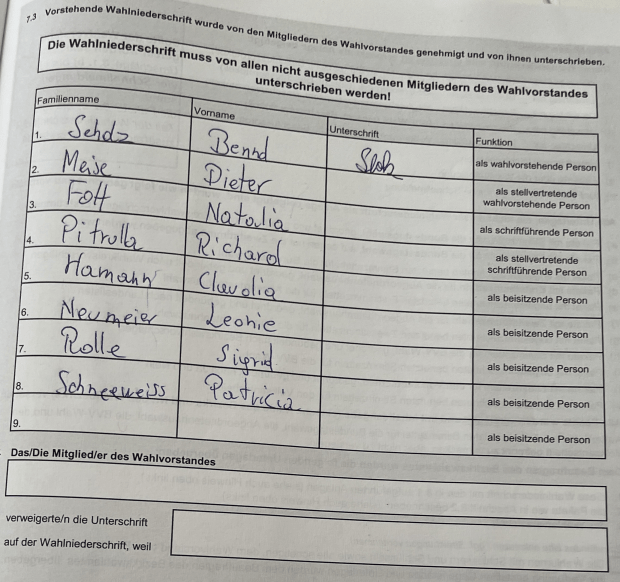 7.3 Vorstehende Wahlniederschrift wurde von den Mitgliedern des Wahlvorstandes genehmigt und von ihnen unterschrieben.
Die Wahlniederschrift muss von allen nicht ausgeschiedenen Mitgliedern des Wahlvorstandes
unterschrieben werden!
Familienname Vorname Unterschrift Funktion
1. Bernhd als wahlvorstehende Person
2. Meise Dieter als stellvertretende
wahlvorstehende Person
3. Natalia als schriftführende Person
4. Pitrolla Richard als stellvertretende
schriftführende Person
5. Hamann Claudia als beisitzende Person
6. Neumeier Leonie als beisitzende Person
7. Rolle Sigrid als beisitzende Person
8. Schneeweiss Patricia als beisitzende Person
9. als beisitzende Person
Das/Die Mitglied/er des Wahlvorstandes
verweigerte/n die Unterschrift
auf der Wahlniederschrift, weil